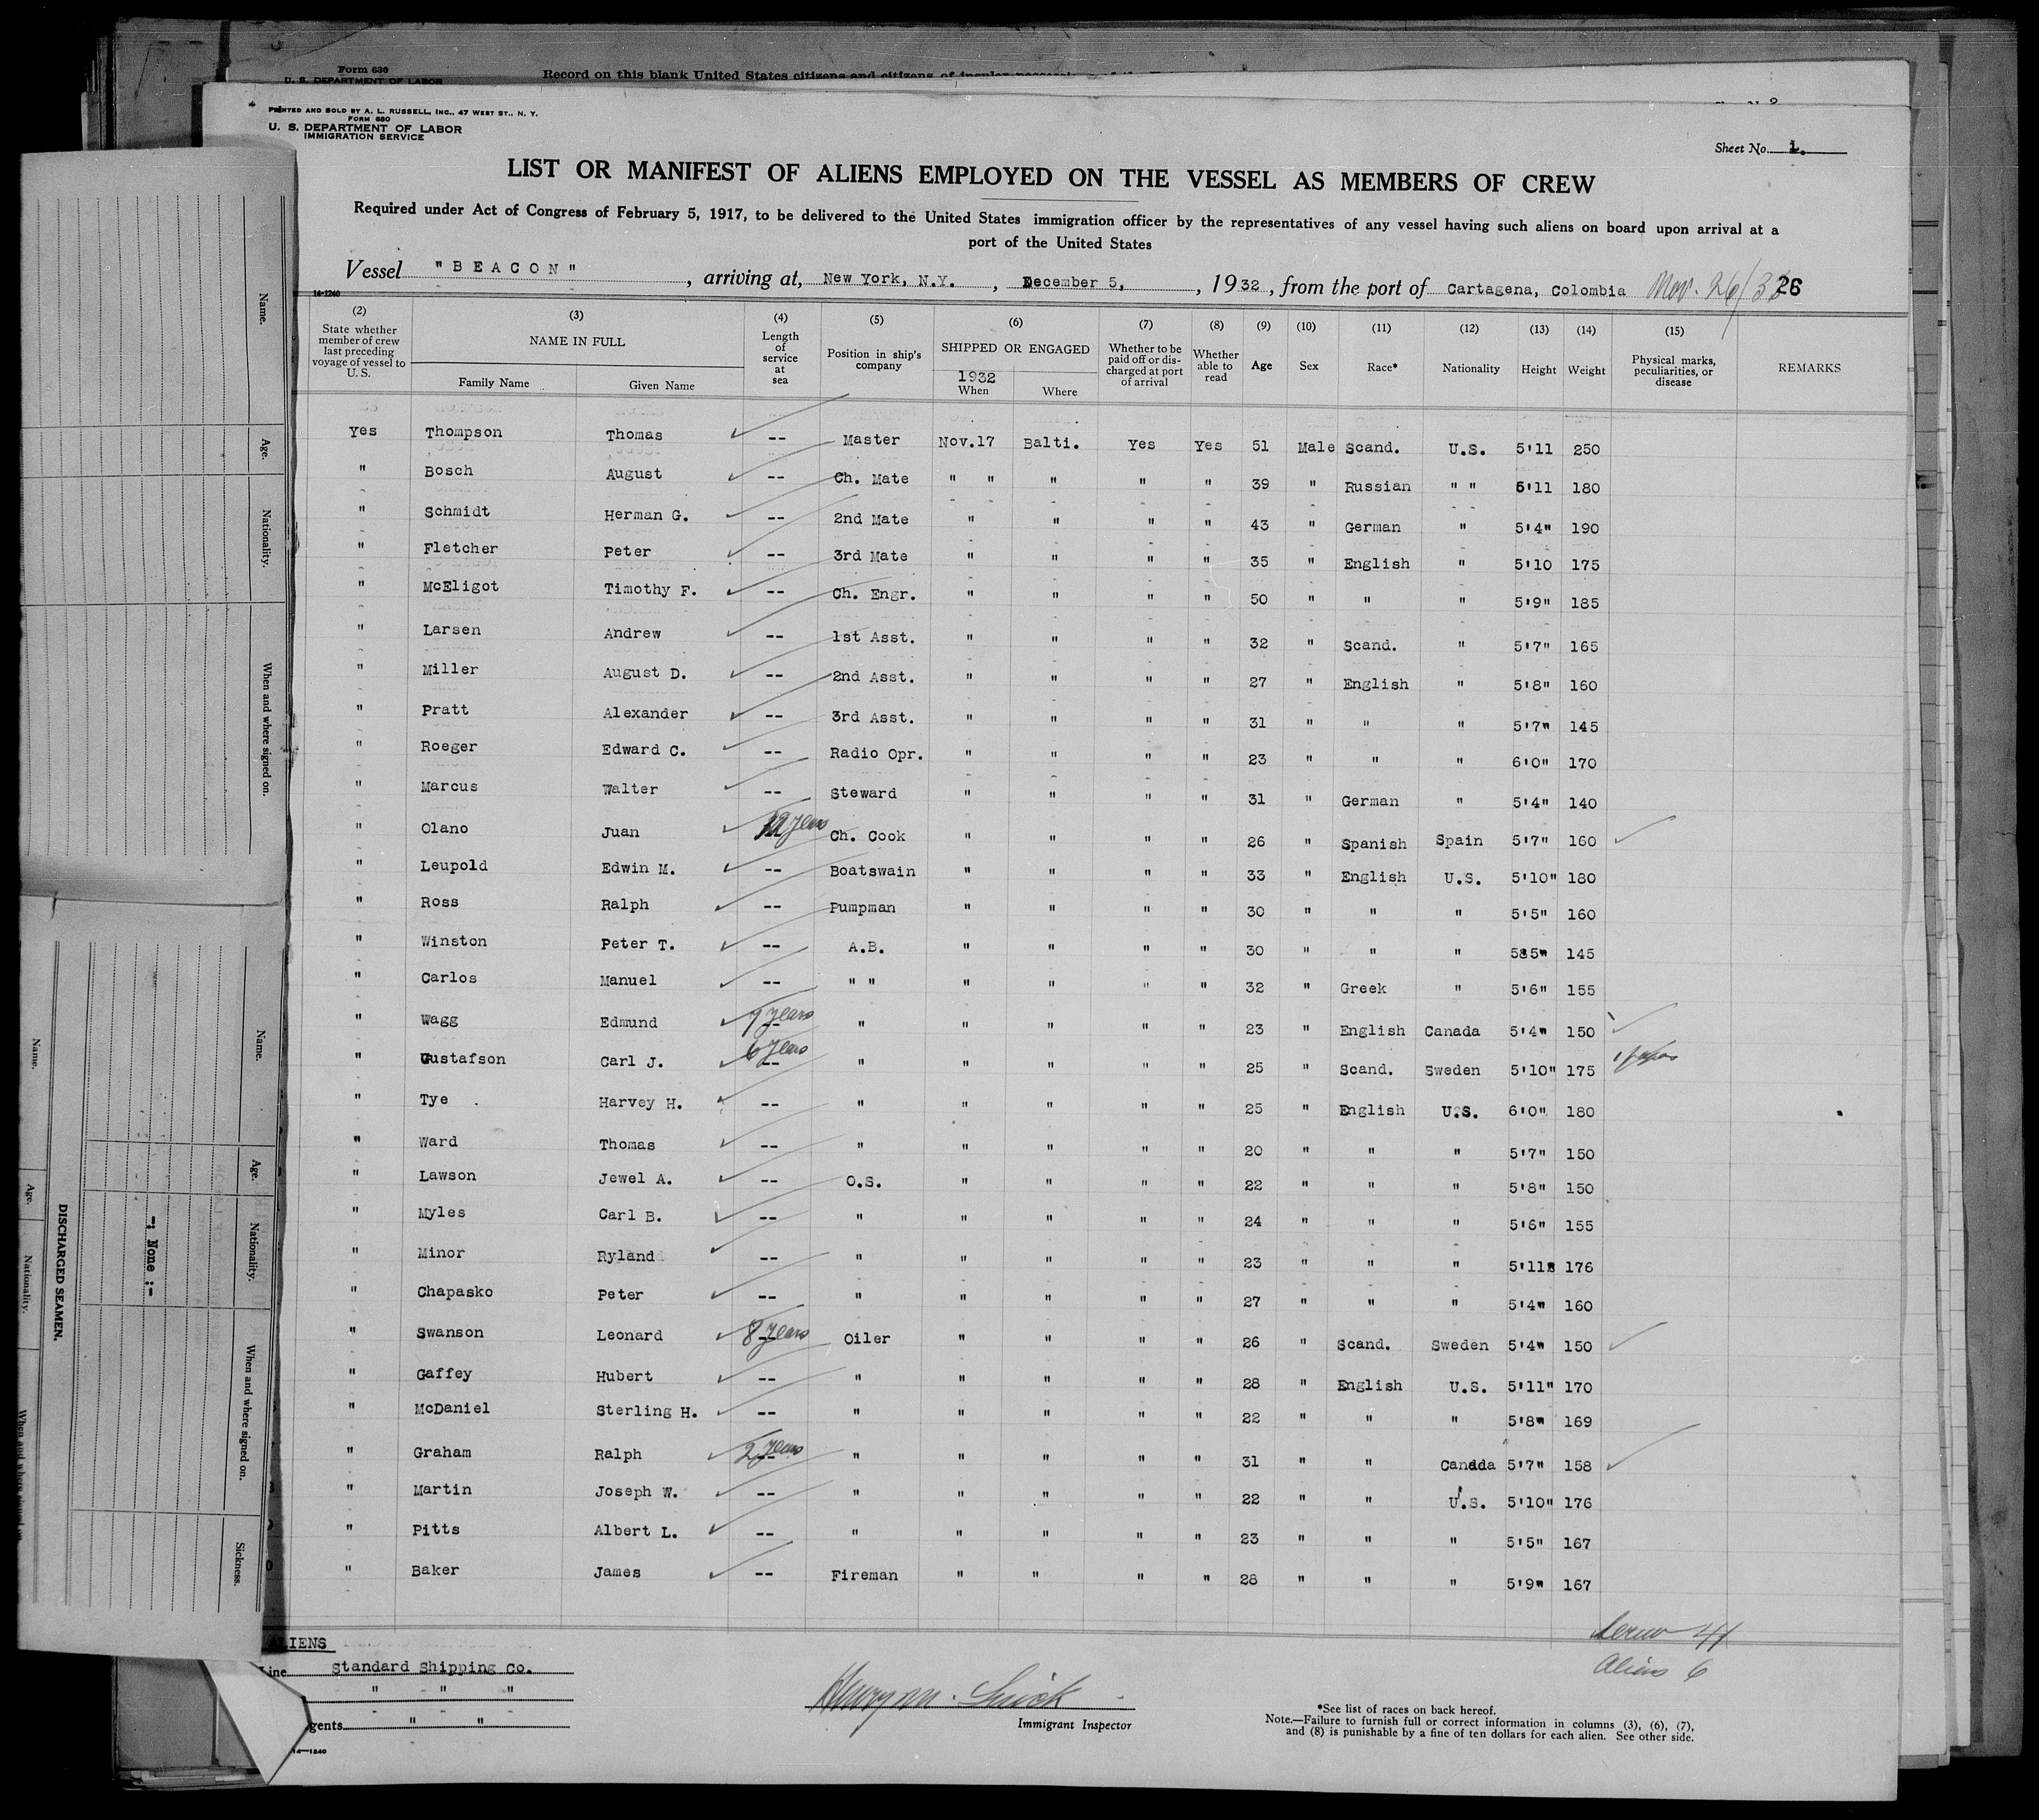 Form 630
U. S. DEPARTMENT OF LABOR
Record on this blank United States citizens and citizens of insular
PRINTED AND SOLD BY A. L. RUSSELL, INC., 47 WEST ST., N. Y.
FORM 680
U. S. DEPARTMENT OF LABOR
IMMIGRATION SERVICE
Sheet No. 1.
LIST OR MANIFEST OF ALIENS EMPLOYED ON THE VESSEL AS MEMBERS OF CREW
Required under Act of Congress of February 5, 1917, to be delivered to the United States immigration officer by the representatives of any vessel having such aliens on board upon arrival at a
port of the United States
Vessel "BEACON", arriving at, New York, N.Y., December 5, , 1932, from the port of Cartagena, Colombia Nov. 26/32 26
14-1240
(2) (3) (4) (5) (6) (7) (8) (9) (10) (11) (12) (13) (14) (15)
State whether member of crew last preceding voyage of vessel to U.S. NAME IN FULL Family Name Given Name Length of service at sea Position in ship's company SHIPPED OR ENGAGED 1932 When Where Whether to be paid off or discharged at port of arrival Whether able to read Age Sex Race* Nationality Height Weight Physical marks, peculiarities, or disease REMARKS
Yes Thompson Thomas -- Master Nov.17 Balti. Yes Yes 51 Male Scand. U.S. 5'11 250
" Bosch August -- Ch. Mate " " " " " 39 " Russian " " 5'11 180
" Schmidt Herman G. -- 2nd Mate " " " " 43 " German " 5'4" 190
" Fletcher Peter -- 3rd Mate " " " " 35 " English " 5'10 175
" McEligot Timothy F. -- Ch. Engr. " " " " 50 " " " 5'9" 185
" Larsen Andrew -- 1st Asst. " " " " 32 " Scand. " 5'7" 165
" Miller August D. -- 2nd Asst. " " " " 27 " English " 5'8" 160
" Pratt Alexander -- 3rd Asst. " " " " 31 " " " 5'7" 145
" Roeger Edward C. -- Radio Opr. " " " " 23 " " " 6'0" 170
" Marcus Walter -- Steward " " " " 31 " German " 5'4" 140
" Olano Juan years Ch. Cook " " " " 26 " Spanish Spain 5'7" 160
" Leupold Edwin M. -- Boatswain " " " " 33 " English U.S. 5'10" 180
" Ross Ralph -- Pumpman " " " " 30 " " " 5'5" 160
" Winston Peter T. -- A.B. " " " " 30 " " " 585" 145
" Carlos Manuel -- " " " " " " 32 " Greek " 5'6" 155
" Wagg Edmund 9 years -- " " " " " 23 " English Canada 5'4" 150
" Gustafson Carl J. 6 years -- " " " " " 25 " Scand. Sweden 5'10" 175
" Tye Harvey H. -- " " " " " 25 " English U.S. 6'0" 180
" Ward Thomas -- " " " " " 20 " " " 5'7" 150
" Lawson Jewel A. -- O.S. " " " " 22 " " " 5'8" 150
" Myles Carl B. -- " " " " " 24 " " " 5'6" 155
" Minor Ryland -- " " " " " 23 " " " 5'11" 176
" Chapasko Peter -- " " " " " 27 " " " 5'4" 160
" Swanson Leonard 8 years -- Oiler " " " " 26 " Scand. Sweden 5'4" 150
" Gaffey Hubert -- " " " " " 28 " English U.S. 5'11" 170
" McDaniel Sterling H. -- " " " " " 22 " " " 5'8" 169
" Graham Ralph 2 years -- " " " " " 31 " " Canada 5'7" 158
" Martin Joseph W. -- " " " " " 22 " " U.S. 5'10" 176
" Pitts Albert L. -- " " " " " 23 " " " 5'5" 167
" Baker James -- Fireman " " " " 28 " " " 5'9" 167
41
Aliens 6
ALIENS
Line Standard Shipping Co.
" " "
gents " "
14-1240
Immigrant Inspector
*See list of races on back hereof.
Note.—Failure to furnish full or correct information in columns (3), (6), (7),
and (8) is punishable by a fine of ten dollars for each alien. See other side.
Name.
Age.
Nationality.
When and where signed on.
Name.
Age.
Nationality.
When and where signed on.
Sickness.
-: None :-
DISCHARGED SEAMEN.
Name.
Age.
Nationality.
When and where signed on.